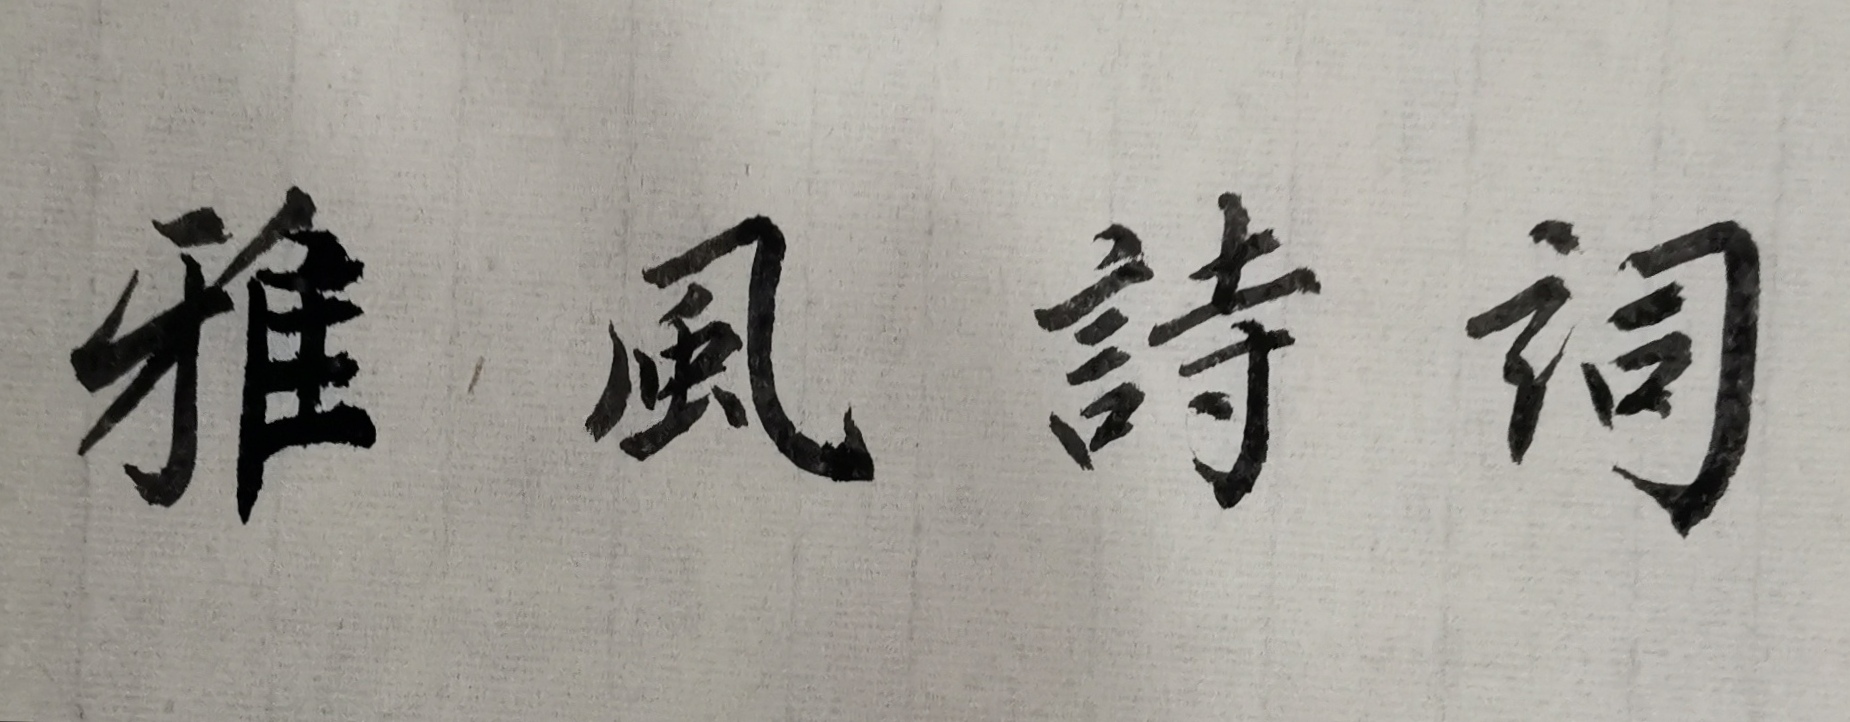 雅風詩词